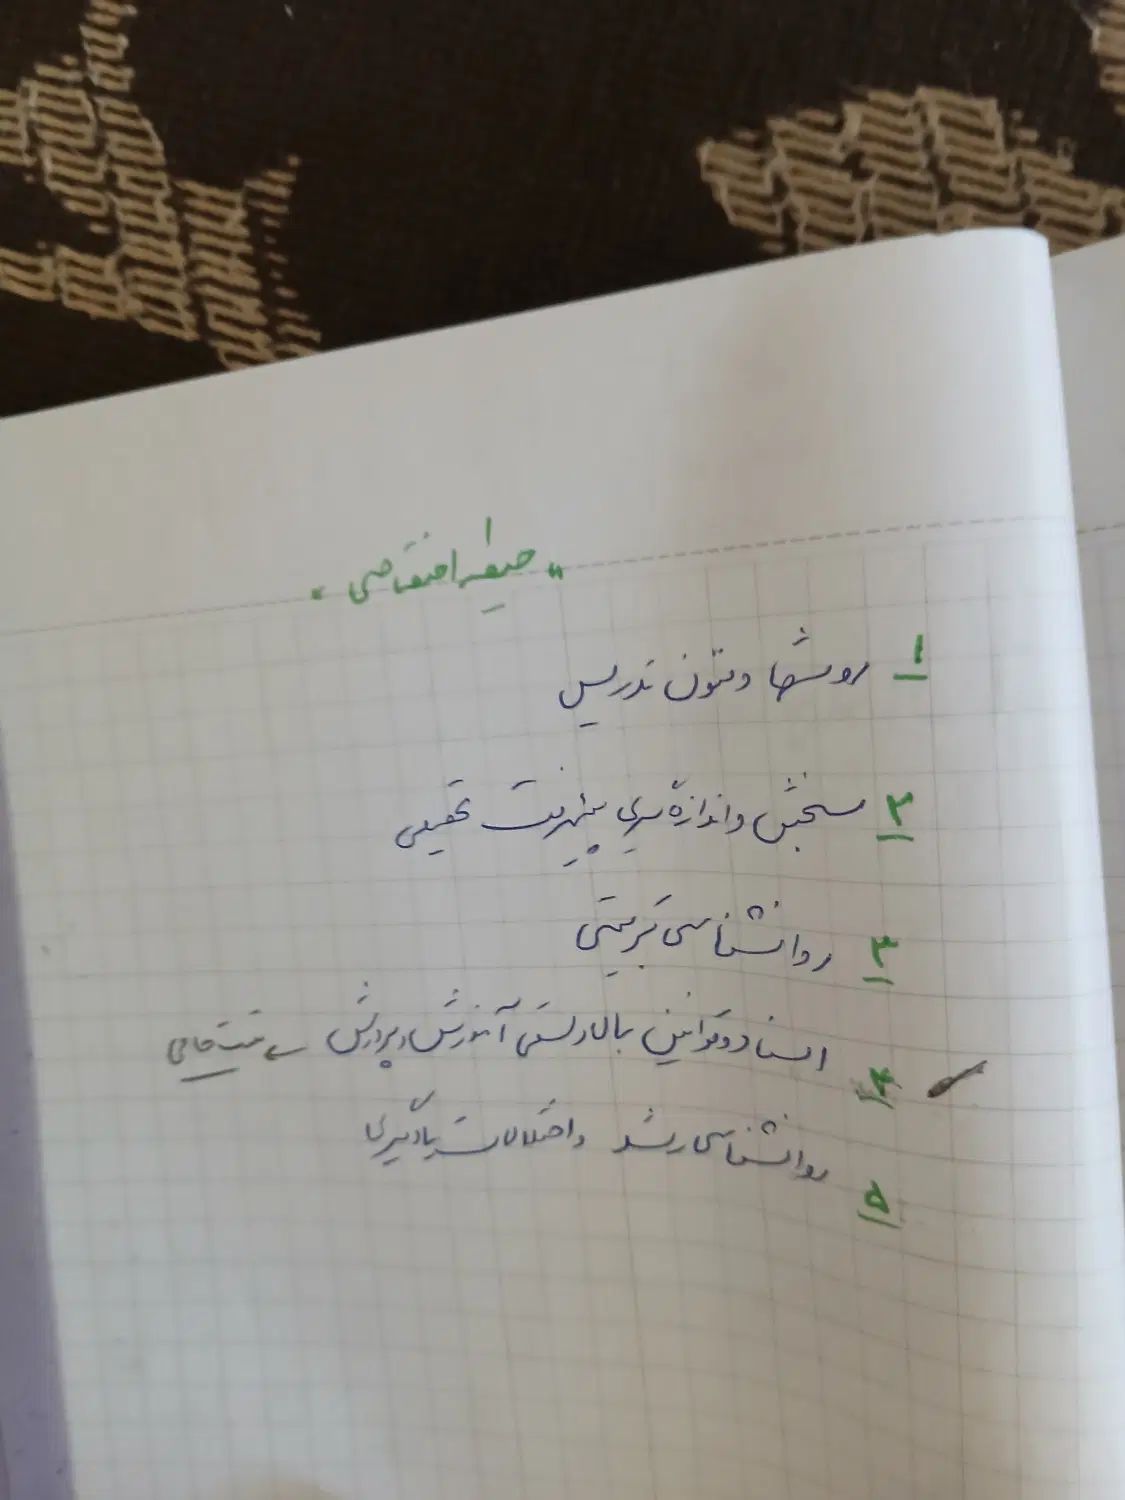 " حیطه اختصاصی "
۱ روشها و فنون تدریس
۲ سنجش و اندازه گیری پیشرفت تحصیلی
۳ روانشناسی تربیتی
۴ اسناد و قوانین بالادستی آموزش و پرورش
۵ روانشناسی رشد و اختلالات یادگیری